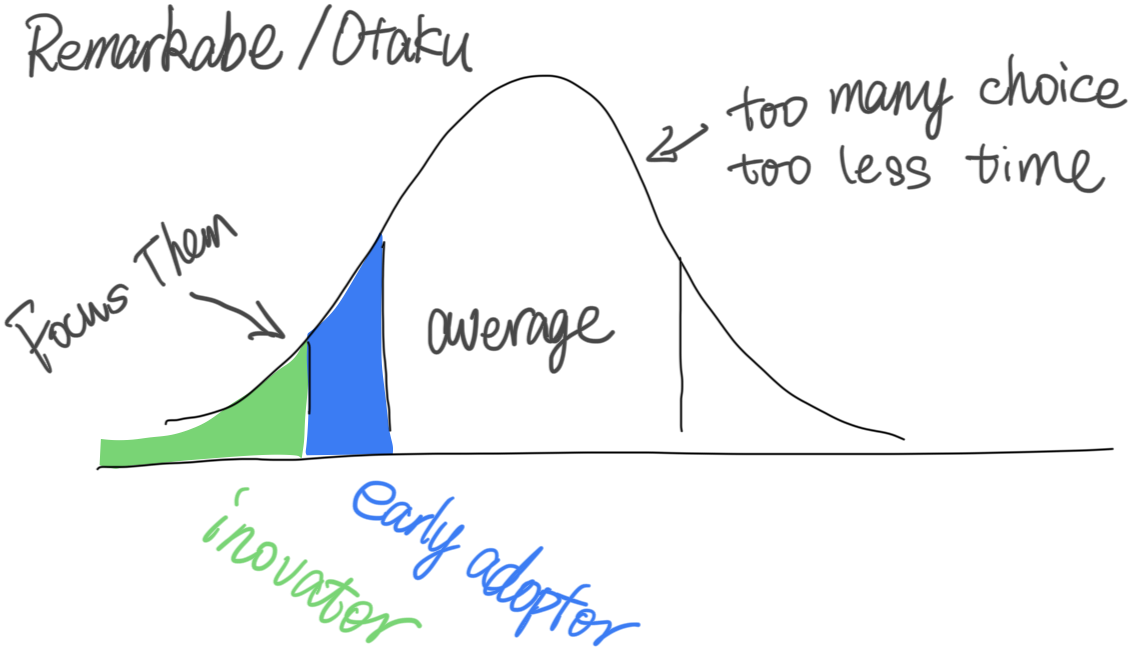 Remarkabe / Otaku
too many choice
too less time
Focus Them
average
inovator
early adoptor